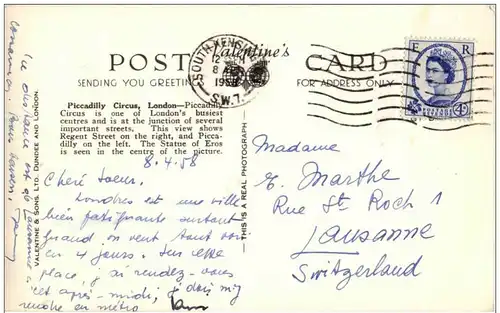 POST CARD
Valentine's
SENDING YOU GREETINGS
FOR ADDRESS ONLY
SOUTH KENSINGTON
12
8
1958
S.W.7.
E R
4D
Piccadilly Circus, London—Piccadilly
Circus is one of London's busiest
centres and is at the junction of several
important streets. This view shows
Regent Street on the right, and Picca-
dilly on the left. The Statue of Eros
is seen in the centre of the picture.
8.4.58
Chère Soeur.
Londres est une ville
bien fatiguante surtout
quand on veut tout voir
en 4 jours. Sur cette
place, j'ai rendez-vous
cet après-midi, je dois m'y
rendre en métro
VALENTINE & SONS, LTD. DUNDEE AND LONDON.
THIS IS A REAL PHOTOGRAPH
Madame
E. Marthe
Rue St Roch 1
Lausanne
Switzerland